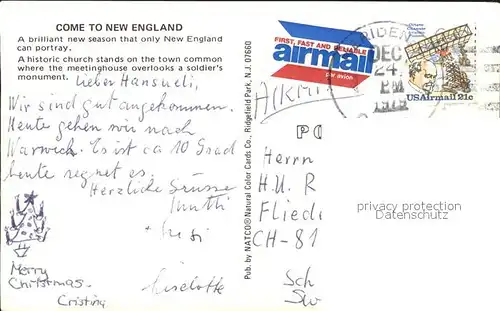 COME TO NEW ENGLAND
A brilliant new season that only New England
can portray.
A historic church stands on the town common
where the meetinghouse overlooks a soldier's
monument.
Lieber Hansueli,
Wir sind gut angekommen.
Heute gehen wir nach
Warwick. Es ist ca 10 Grad
heute regnet es.
Herzliche Grüsse
+
Liselotte
Merry
Christmas.
Cristina
Pub. by NATCO® Natural Color Cards Co., Ridgefield Park, N.J. 07660
FIRST, FAST AND RELIABLE
airmail
par avion
RIDEN
DEC
24
PM
1979
USAirmail 21c
PO
Herrn
H.U. R
Fliedi
CH-81
Sch
Sw
privacy protection
Datenschutz